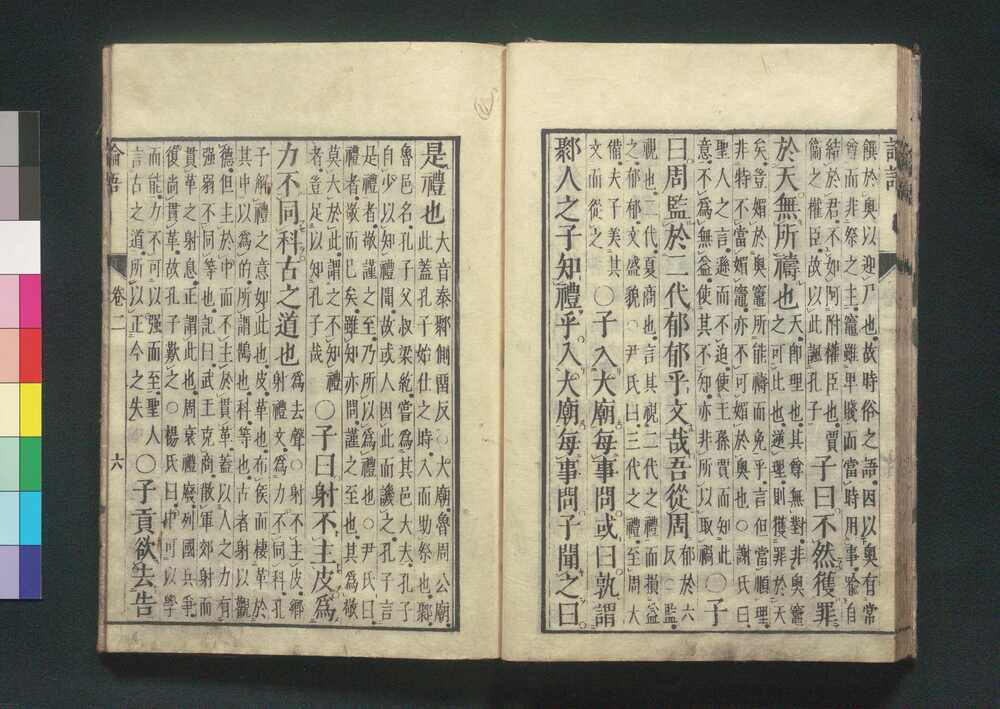 饌於奧以迎尸也故時俗之語因以奧有常
尊而非祭之主竈雖卑賤而當時用事喻自
結於君不如阿附權臣也賈
衞之權臣故以此諷孔子
子曰不然獲罪
於天無所禱也
天即理也其尊無對非奧竈
之可比也逆理則獲罪於天
矣豈媚於奧竈所能禱而免乎言但當順理
非特不當媚竈亦不可媚於奧也○謝氏曰
聖人之言遜而不迫使王孫賈而知此
意不爲無益使其不知亦非所以取禍
○子
曰周監於二代郁郁乎文哉吾從周
郁於六
反○監
視也二代夏商也言其視二代之禮而損益
之郁郁文盛貌○尹氏曰三代之禮至周大
備夫子美其
文而從之
○子入大廟每事問或曰孰謂
鄹人之子知禮乎入大廟每事問子聞之曰
是禮也
大音泰鄹側留反○大廟魯周公廟
此蓋孔子始仕之時入而助祭也鄹
魯邑名孔子父叔梁紇嘗爲其邑大夫孔子
自少以知禮聞故或人因此而譏之孔子言
是禮者敬謹之至乃所以爲禮也○尹氏曰
禮者敬而已矣雖知亦問謹之至也其爲敬
莫大於此謂之不知禮
者豈足以知孔子哉
○子曰射不主皮爲
力不同科古之道也
爲去聲○射不主皮鄉
射禮文爲力不同科孔
子解禮之意如此也皮革也布侯而棲革於
其中以爲的所謂鵠也科等也古者射以觀
德但主於中而不主於貫革蓋以人之力有
强弱不同等也記曰武王克商散軍郊射而
貫革之射息正謂此也周衰禮廢列國兵爭
復尚貫革故孔子歎之○楊氏曰中可以學
而能力不可以强而至聖人
言古之道所以正今之失
○子貢欲去告
論語 卷二 六